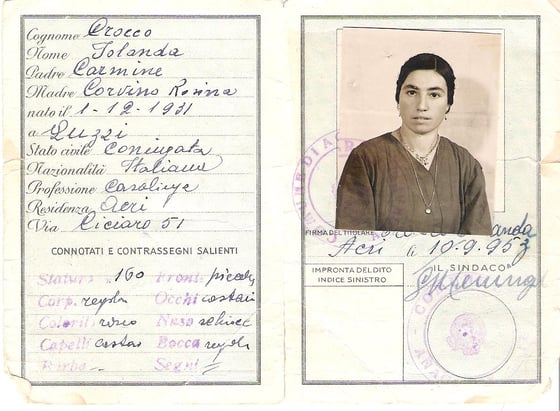 Cognome Crocco
Nome Iolanda
Padre Carmine
Madre Corvino Rosina
nato il 1-12-1931
a Luzzi
Stato civile Coniugata
Nazionalità Italiana
Professione Casalinga
Residenza Acri
Via Ciciaro 51
CONNOTATI E CONTRASSEGNI SALIENTI
Statura 1.60 Fronte piccola
Corp. regolar Occhi castani
Colorit roseo Naso
Capelli castas Bocca regol
Barba - Segni =
COMUNE DI AC
FIRMA DEL TITOLARE anda
Acri li 10-9-953
IMPRONTA DEL DITO
INDICE SINISTRO
IL SINDACO